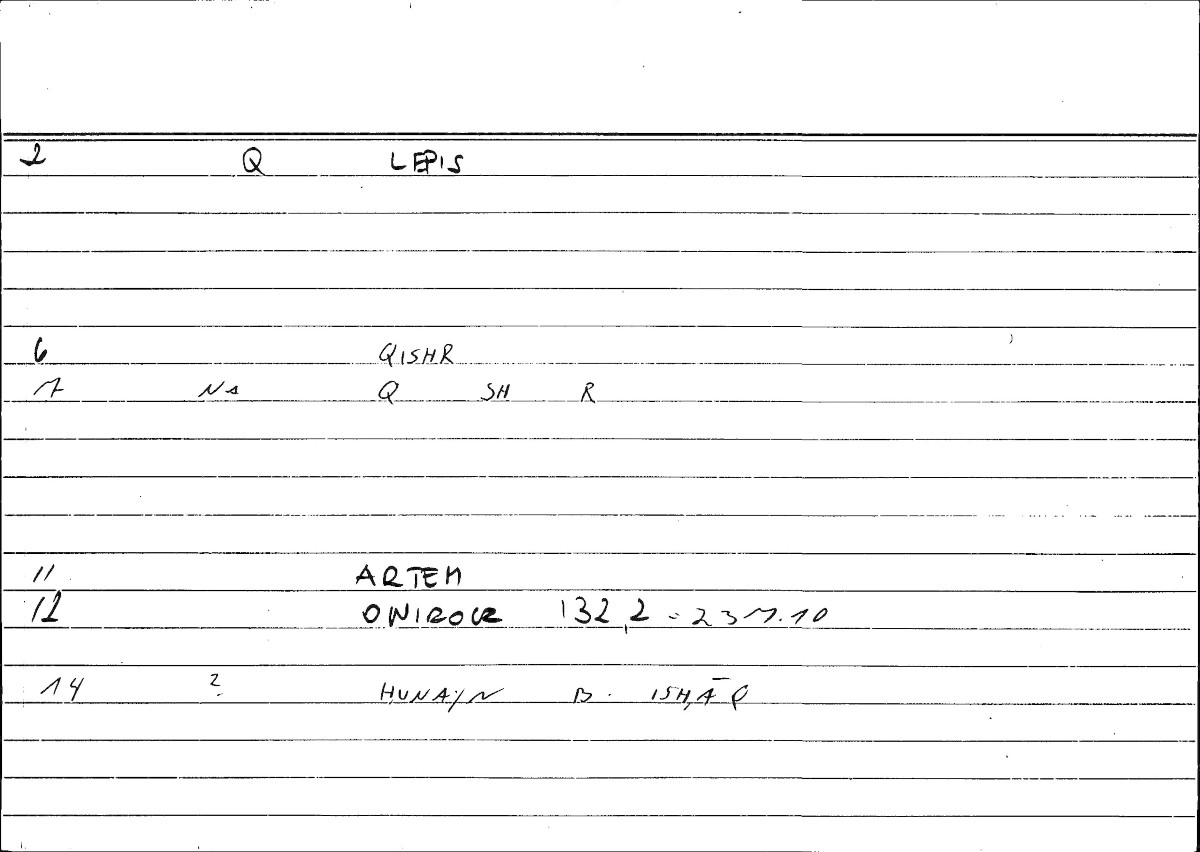 2 Q LEPIS
6 QISHR
7 NA Q SH R
11 ARTEM
12 ONIROCR 132,2 = 237.10
14 ? HUNAYN B. ISḤĀQ